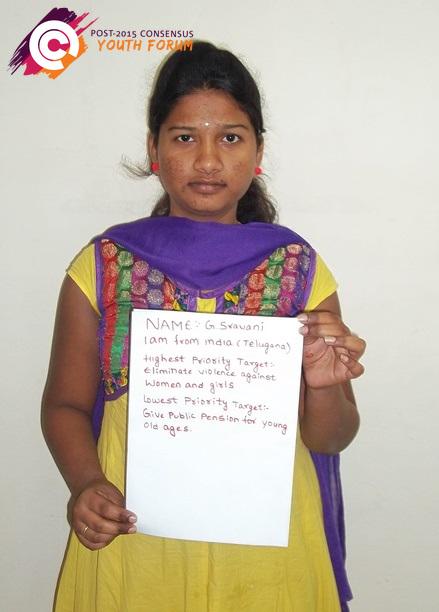 POST-2015 CONSENSUS
YOUTH FORUM
NAME:- G. Sravani
I am from India (Telugana)
Highest Priority Target:-
Eliminate violence against
Women and girls
Lowest Priority Target:-
Give Public Pension for young
Old ages.